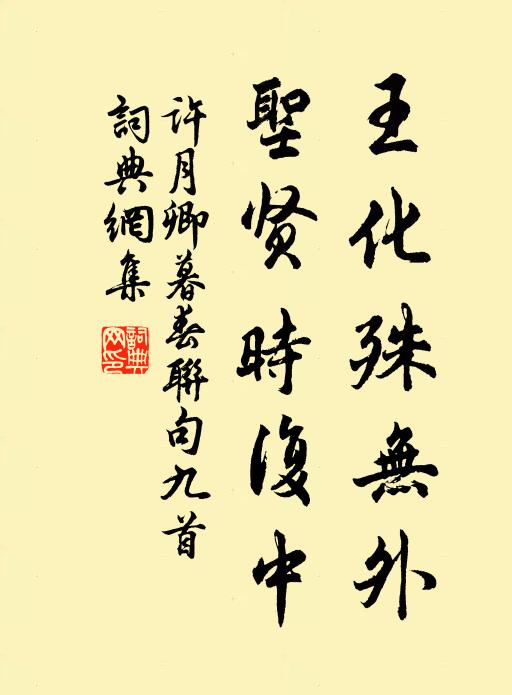 王化殊無外
聖贤時復中
許月卿暮春聯句九首
詞典網集
詞典網印